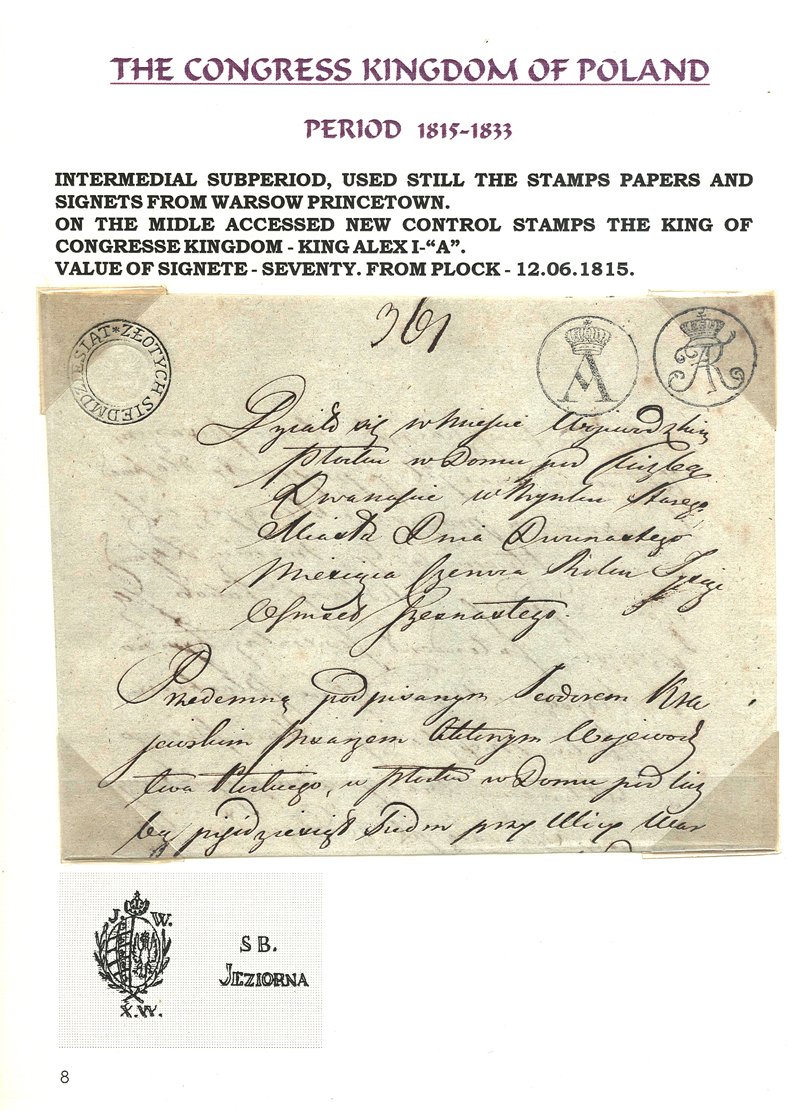 THE CONGRESS KINGDOM OF POLAND
PERIOD 1815-1833
INTERMEDIAL SUBPERIOD, USED STILL THE STAMPS PAPERS AND
SIGNETS FROM WARSOW PRINCETOWN.
ON THE MIDLE ACCESSED NEW CONTROL STAMPS THE KING OF
CONGRESSE KINGDOM - KING ALEX I-“A”.
VALUE OF SIGNETE - SEVENTY. FROM PLOCK - 12.06.1815.
SIEDMDZIESIĄT * ZŁOTYCH
361
A
AR
Działo się w Mieście Wojewódzkim
Płocku w Domu pod Liczbą
Dwanaście w Rynku Starego
Miasta Dnia Dwunastego
Miesiąca Czerwca Roku Tysiąc
Ośmset Szesnastego.
Przedemną podpisanym Teodorem Kra
jewskim Pisarzem Aktowym Wojewodz
twa Płockiego, w Płocku w Domu pod licz
bą pięćdziesiąt Siedm przy Ulicy War
J. W.
X.W.
SB.
JEZIORNA
8